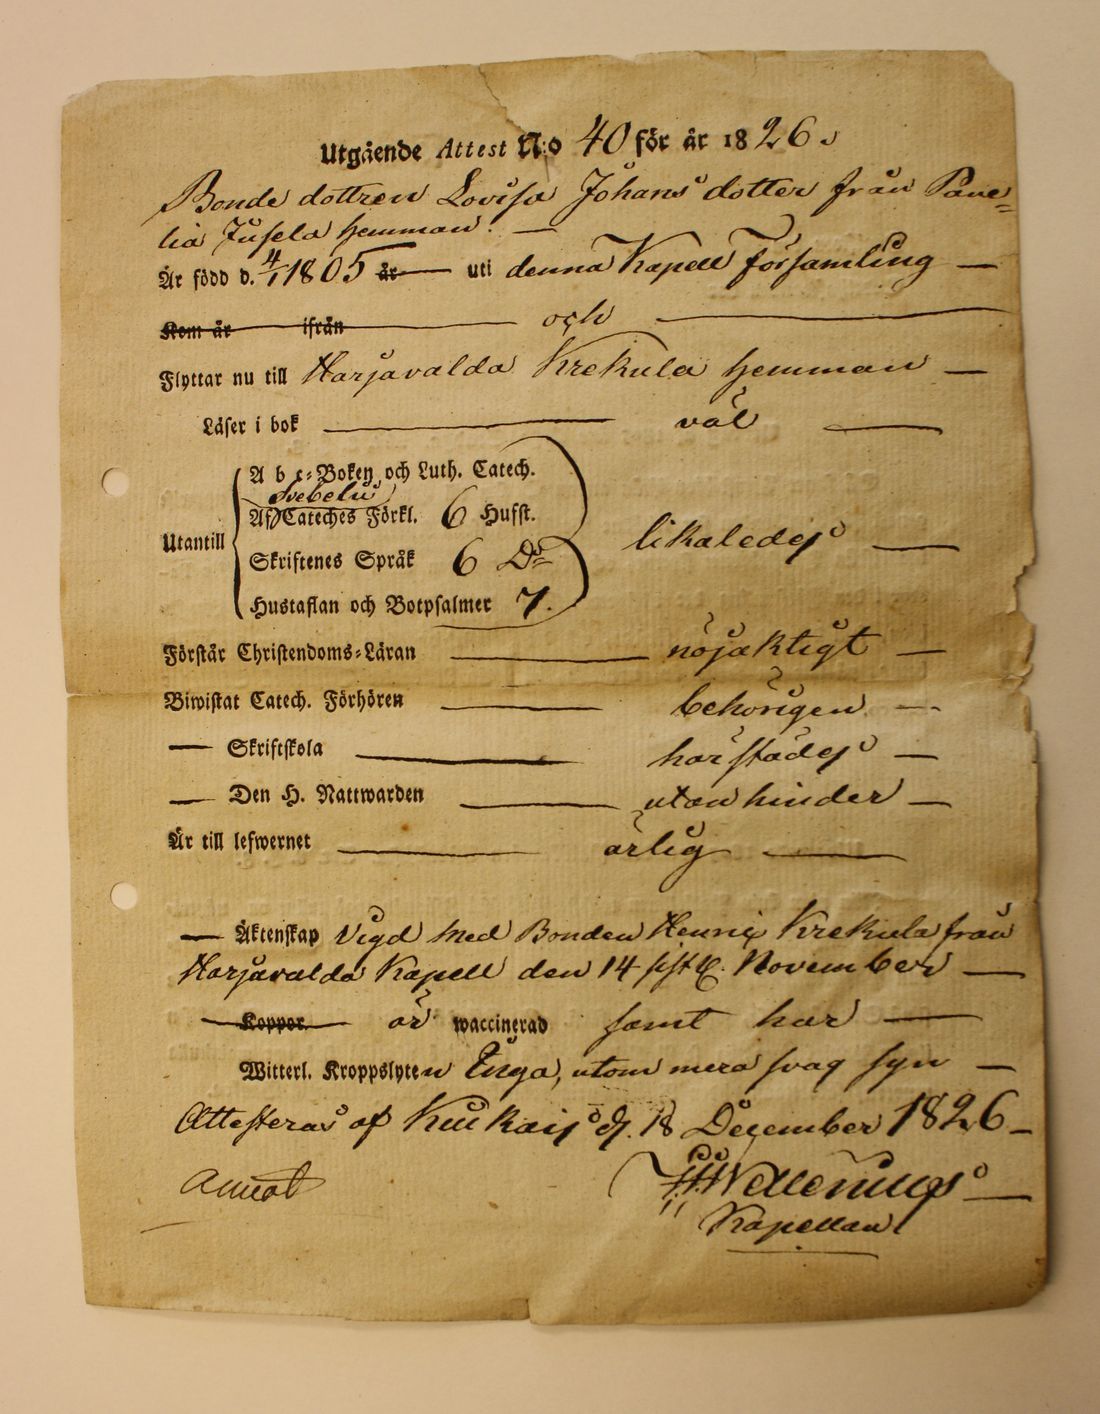 Utgående Attest N:o 40 för år 1826.
Bonde dottren Lovisa Johans dotter från Pane=
lia Jusela hemman. —
Är född d. 4/1 1805 år — uti denna Kapell Församling —
Kom år ifrån — och —
Flyttar nu till Harjavalda Krekula hemman —
Läser i bok — väl —
A b c-Boken och Luth. Catech.
Svebelii
Af Cateches Förkl. 6 Hufst.
Utantill
likaledes —
Skriftenes Språk 6 Do
Hustaflan och Botpsalmer 7.
Förstår Christendoms-Läran — nöjaktigt —
Biwistat Catech. Förhören — behörigen —
— Skriftskola — härstädes —
— Den H. Nattwarden — utan hinder —
Är till lefwernet — ärlig —
— Äktenskap Vigd med Bonden Henric Krekula från
Harjavalda Kapell den 14 sistl. November —
— Koppor — är waccinerad samt har —
Witterl. Kroppslyten Inga, utom mera svag syn —
Attesteras af Kiukais d. 18 December 1826 —
Wellenius —
Kapellan